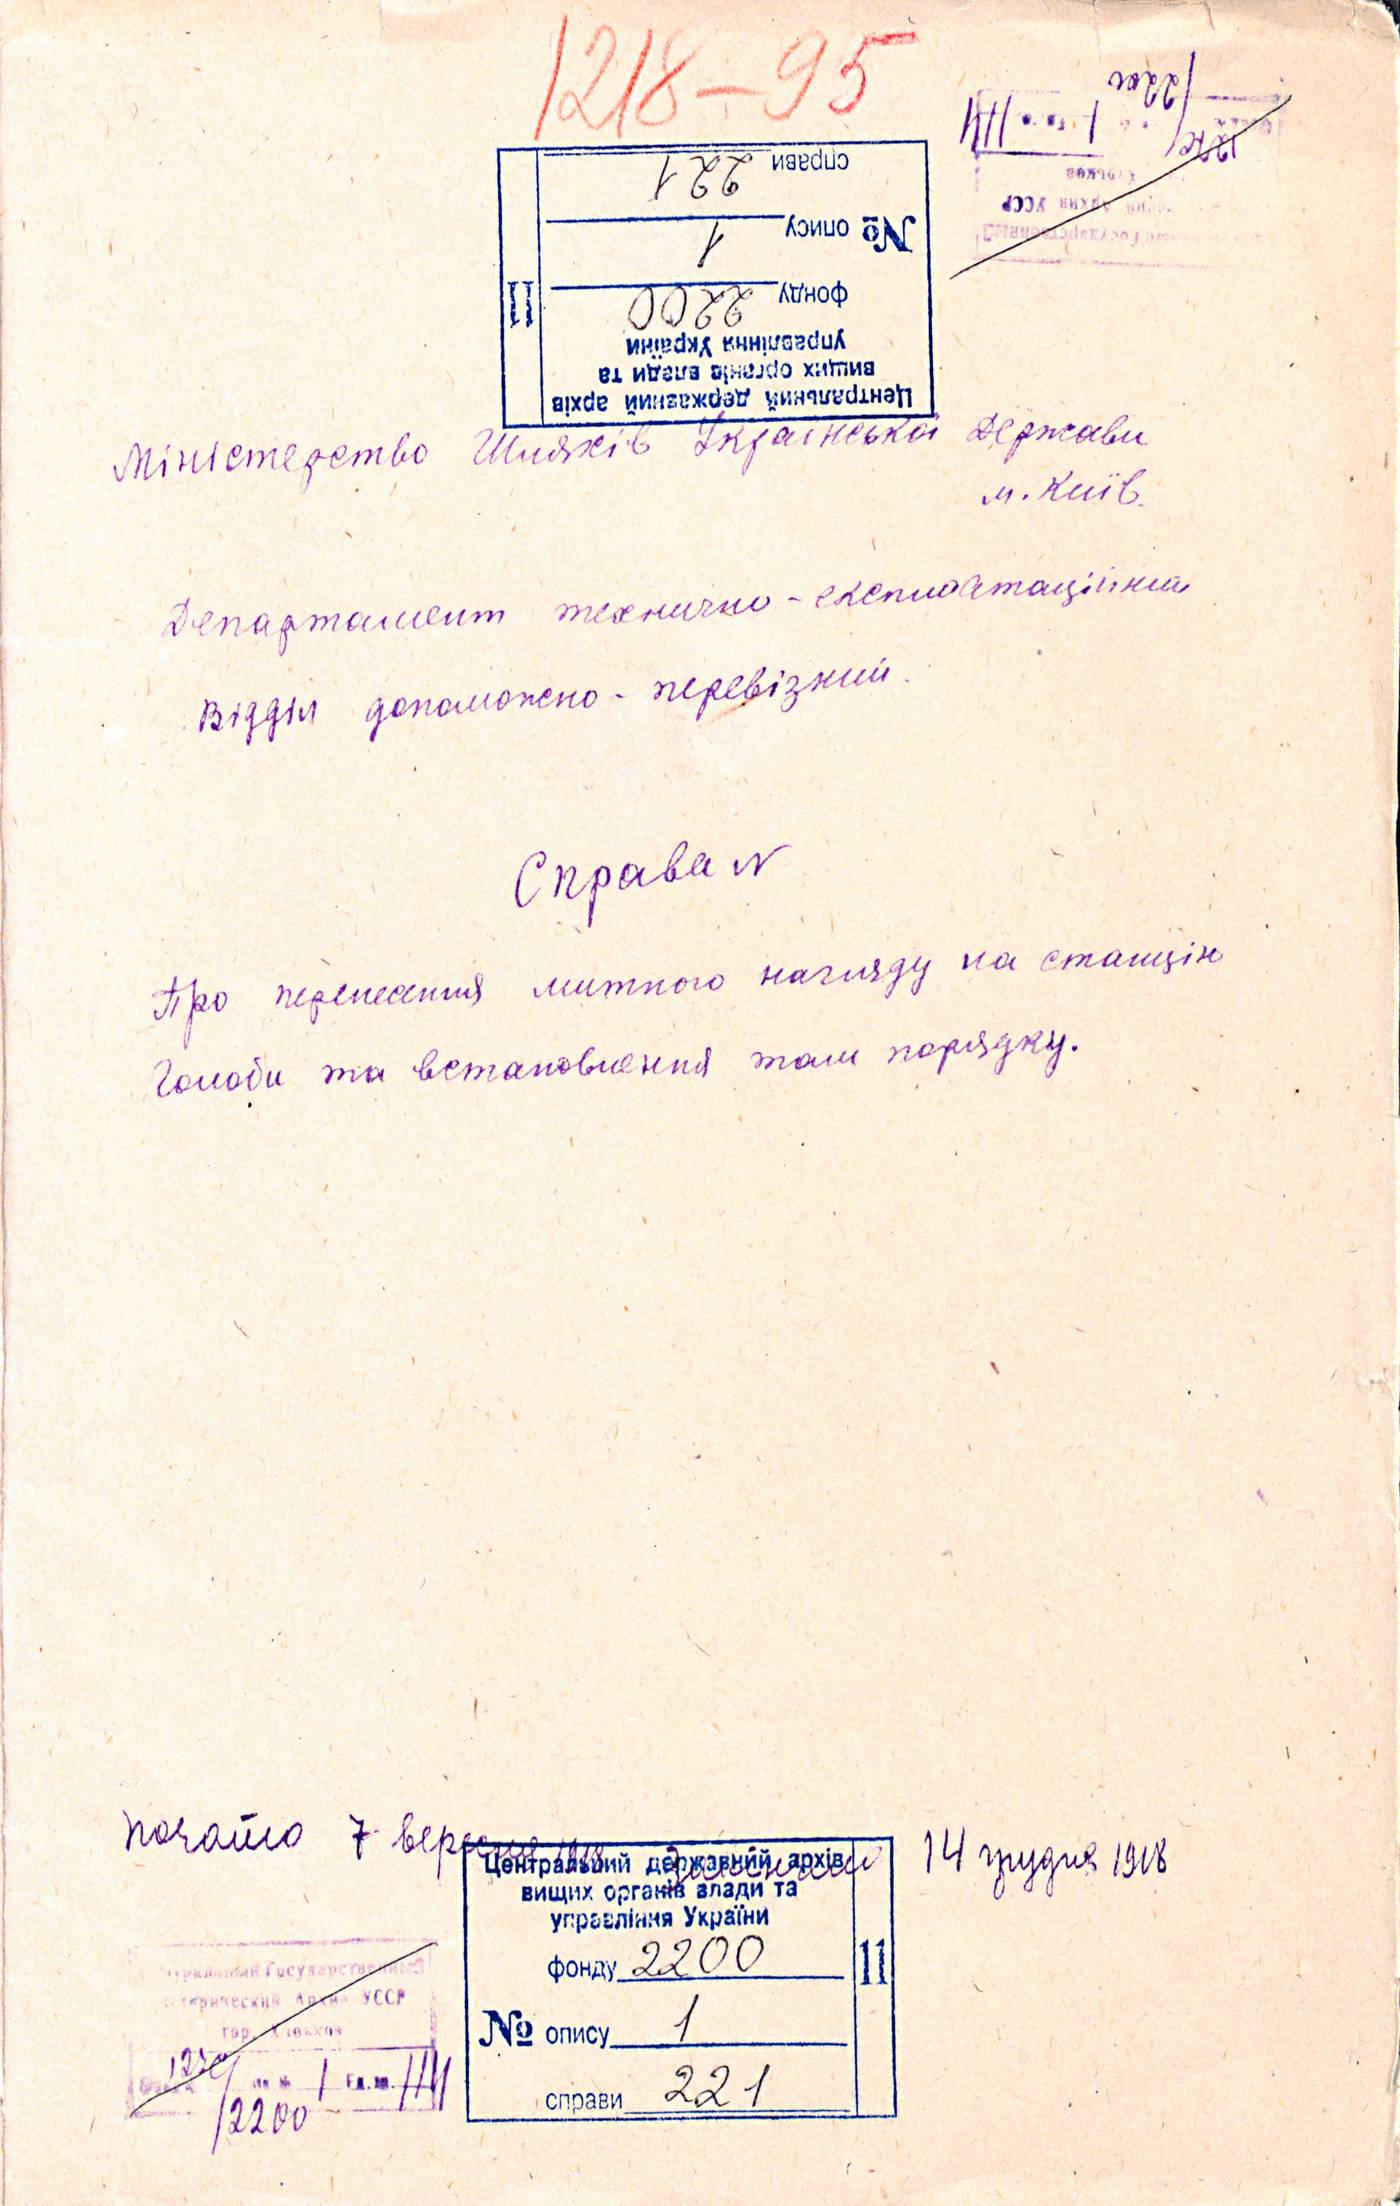 1218-95
справи 221
№ опису 1
фонду 2200
управління України
вищих органів влади та
Центральний державний архів
11
/2200
Архив УССР
Міністерство Шляхів Української Держави
м. Київ.
Департамент технично-експлоатаційний
Відділ допоможно-перевізний.
Справа N
Про перенесення митного нагляду на станцію
Голоби та встановлення там порядку.
Почато 7 вересня 1918 Закінчено 14 грудня 1918
Центральний державний архів
вищих органів влади та
управління України
фонду 2200
№ опису 1
справи 221
11
Государственный
Архив УССР
гор. Харьков
1 Ед.хр.
/2200